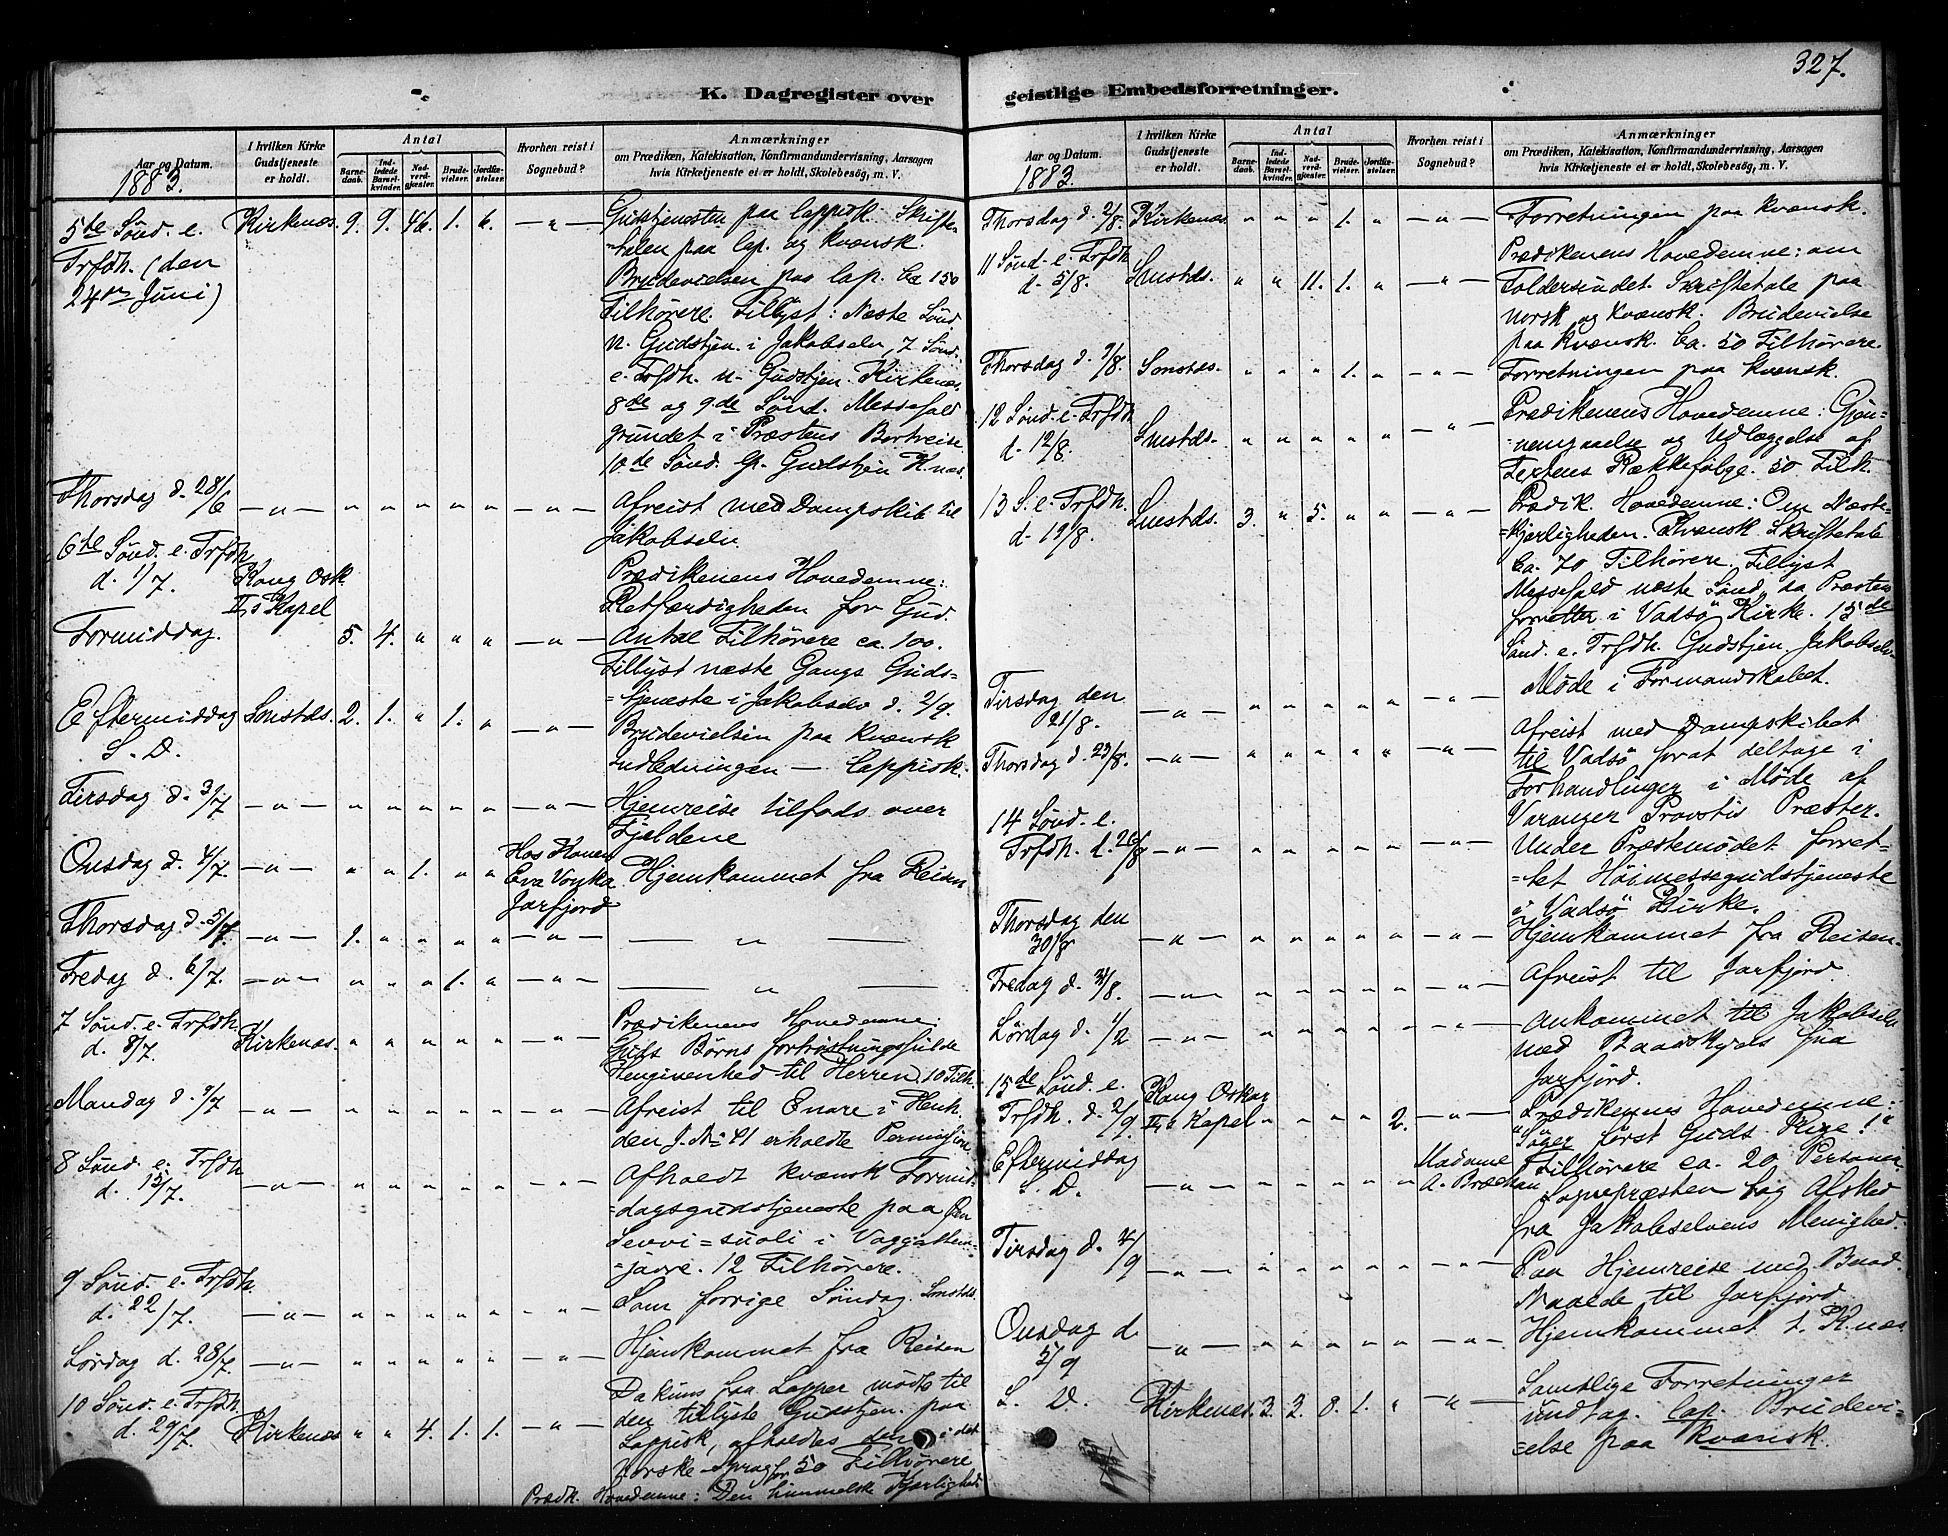 327.
K. Dagregister over
geistlige Embedsforretninger.
Aar og Datum.
1883.
I hvilken Kirke
Gudstjeneste
er holdt.
Antal
Barne-
daab.
Ind-
ledede
Barsel-
kvinder.
Nad-
verd-
gjæster.
Brude-
vielser.
Jordfæ-
stelser.
Hvorhen reist i
Sognebud?
Anmærkninger
om Prædiken, Katekisation, Konfirmandundervisning, Aarsagen
hvis Kirketjeneste ei er holdt, Skolebesøg, m. V.
5te Sönd. e.
Trfdh. (den
24de Juni)
Kirkenæs. 9. 9. 46. 1. 6. — " —
Gudstjenesten paa lappisk. Skrifte-
talen paa lap. og kvænsk.
Brudevielsen paa lap. Ca 150
Tilhörere. Tillyst: Næste Sönd.
n. Gudstjen. i Jakobselv, 7 Sönd.
e. Trfdh. n. Gudstjen. Kirkenæs.
8de og 9de Sönd. Messefald
grundet i Præstens Bortreise
10de Sönd. lp. Gudstjen Knæs.
Thorsdag d. 28/6 — " — " " " " " — " —
Afreist med Dampskib til
Jakobselv.
6te Sönd. e. Trfdh.
d. 1/7.
Kong Osk.
IIs Kapel
Formiddag. 5. 4. " " " — " —
Prædikenens Hovedemne:
Retfærdigheden for Gud.
Antal Tilhörere ca. 100.
Tillyst næste Gangs Guds-
tjeneste i Jakobselv d. 2/9.
Eftermiddag
S. D.
Smstds. 2. 1. " 1. " — " —
Brudevielsen paa kvænsk
Indledningen — lappisk.
Tirsdag d. 3/7 — " — " " " " " — " —
Hjemreise tilfods over
Fjeldene
Onsdag d. 4/7 — " — " " 1. " "
Hos Konen
Eva
Jarfjord
Hjemkommet fra Reisen
Thorsdag d. 5/7. — " — 1. " " " " — " — — " —
Fredag d. 6/7. — " — " " " 1. " — " — — " —
7 Sönd. e. Trfdh.
d. 8/7.
Kirkenæs. " " " " " — " —
Prædikenens Hovedemne:
Guds Börns fortröstningsfulde
Hengivenhed til Herren. 10 Tilh.
Mandag d. 9/7 — " — " " " " " — " —
Afreist til Enare i Henh.
den J. No 41 erholdte Permission
8 Sönd. e. Trfdh
d. 15/7.
— " — " " " " " — " —
Afholdt kvænsk Formid-
dagsgudstjeneste paa
i
-javre. 12 Tilhörere.
9 Sönd. e. Trfdh.
d. 22/7.
— " — " " " " " — " —
Som forrige Söndag. Smstds.
Lördag d. 28/7. — " — " " " " " — " —
Hjemkommet fra Reisen
10 Sönd. e. Trfdh.
d. 29/7.
Kirkenæs " " 4. 1. 1. — " —
Da kuns faa Lapper mødte til
den tillyste Gudstjen. paa
Lappisk, afholdtes den i det
Norske Sprog for 50 Tilhörere
Prædk. Hovedemne: Den himmelske Kjærlighed
Aar og Datum.
1883.
I hvilken Kirke
Gudstjeneste
er holdt.
Antal
Barne-
daab.
Ind-
ledede
Barsel-
kvinder.
Nad-
verd-
gjæster.
Brude-
vielser.
Jordfæ-
stelser.
Hvorhen reist i
Sognebud?
Anmærkninger
om Prædiken, Katekisation, Konfirmandundervisning, Aarsagen
hvis Kirketjeneste ei er holdt, Skolebesøg, m. V.
Thorsdag d. 2/8. Kirkenæs. " " " 1. " — " —
Forretningen paa kvænsk.
11 Sönd. e. Trfdh
d. 5/8.
Smstds. " " 11. 1. " — " —
Prædikenens Hovedemne: om
Toldersindet. Skriftetale paa
norsk og kvænsk. Brudevielse
paa kvænsk. Ca. 50 Tilhörere.
Thorsdag d. 9/8. Smstds. " " " 1. " — " —
Forretningen paa kvænsk.
12 Sönd. e. Trfdh
d. 12/8.
Smstds. " " " " " — " —
Prædikenens Hovedemne: Gjen-
nemgaaelse og Udlæggelse af
Textens Rækkefölge. 50 Tilh.
13 S. e. Trfdh.
d. 19/8.
Smstds. 3. " 5. " " — " —
Prædik. Hovedemne: Om Næste-
kjærligheden. Kvænsk Skriftetale
Ca. 70 Tilhörere. Tillyst
Messefald næste Sönd., da Præsten
forretter i Vadsö Kirke. 15de
Sönd. e. Trfdh. Gudstjen. Jakobselv.
Tirsdag den
21/8.
— " — " " " " " — " —
Möde i Formandskabet.
Thorsdag d. 23/8. — " — " " " " " — " —
Afreist med Dampskibet
til Vadsö forat deltage i
Forhandlinger i Möde af
Varanger Provstis Præster.
14 Sönd. e.
Trfdh. d. 26/8
— " — " " " " " — " —
Under Præstemödet forret-
tet Höimessegudstjeneste
i Vadsö Kirke.
Thorsdag den
30/8
— " — " " " " " — " —
Hjemkommet fra Reisen.
Fredag d. 31/8. — " — " " " " " — " —
Afreist til Jarfjord.
Lördag d. 1/2 — " — " " " " " — " —
Ankommet til Jakobselv
med Baadskyds fra
Jarfjord.
15de Sönd. e.
Trfdh. d. 2/9.
Kong Oskar
IIs Kapel " " " " 2. — " —
Prædikenens Hovedemne:
"Söger först Guds Rige!"
Tilhörere ca. 20 Personer
Eftermiddag
S. D.
— " — " " " " "
Madame
A. Brækan
Sognepræsten tog Afsked
fra Jakobselvens Menighed.
Tirsdag d. 4/9 — " — " " " " " — " —
Paa Hjemreise med Baad.
Naaede til Jarfjord
Onsdag d.
5/9
— " — " " " " " — " —
Hjemkommet t. Knæs
S. D. Kirkenæs. 3. 3. 8. 1. " — " —
Samtlige Forretninger
undtag. lap. Brudevi-
else paa kvænsk.